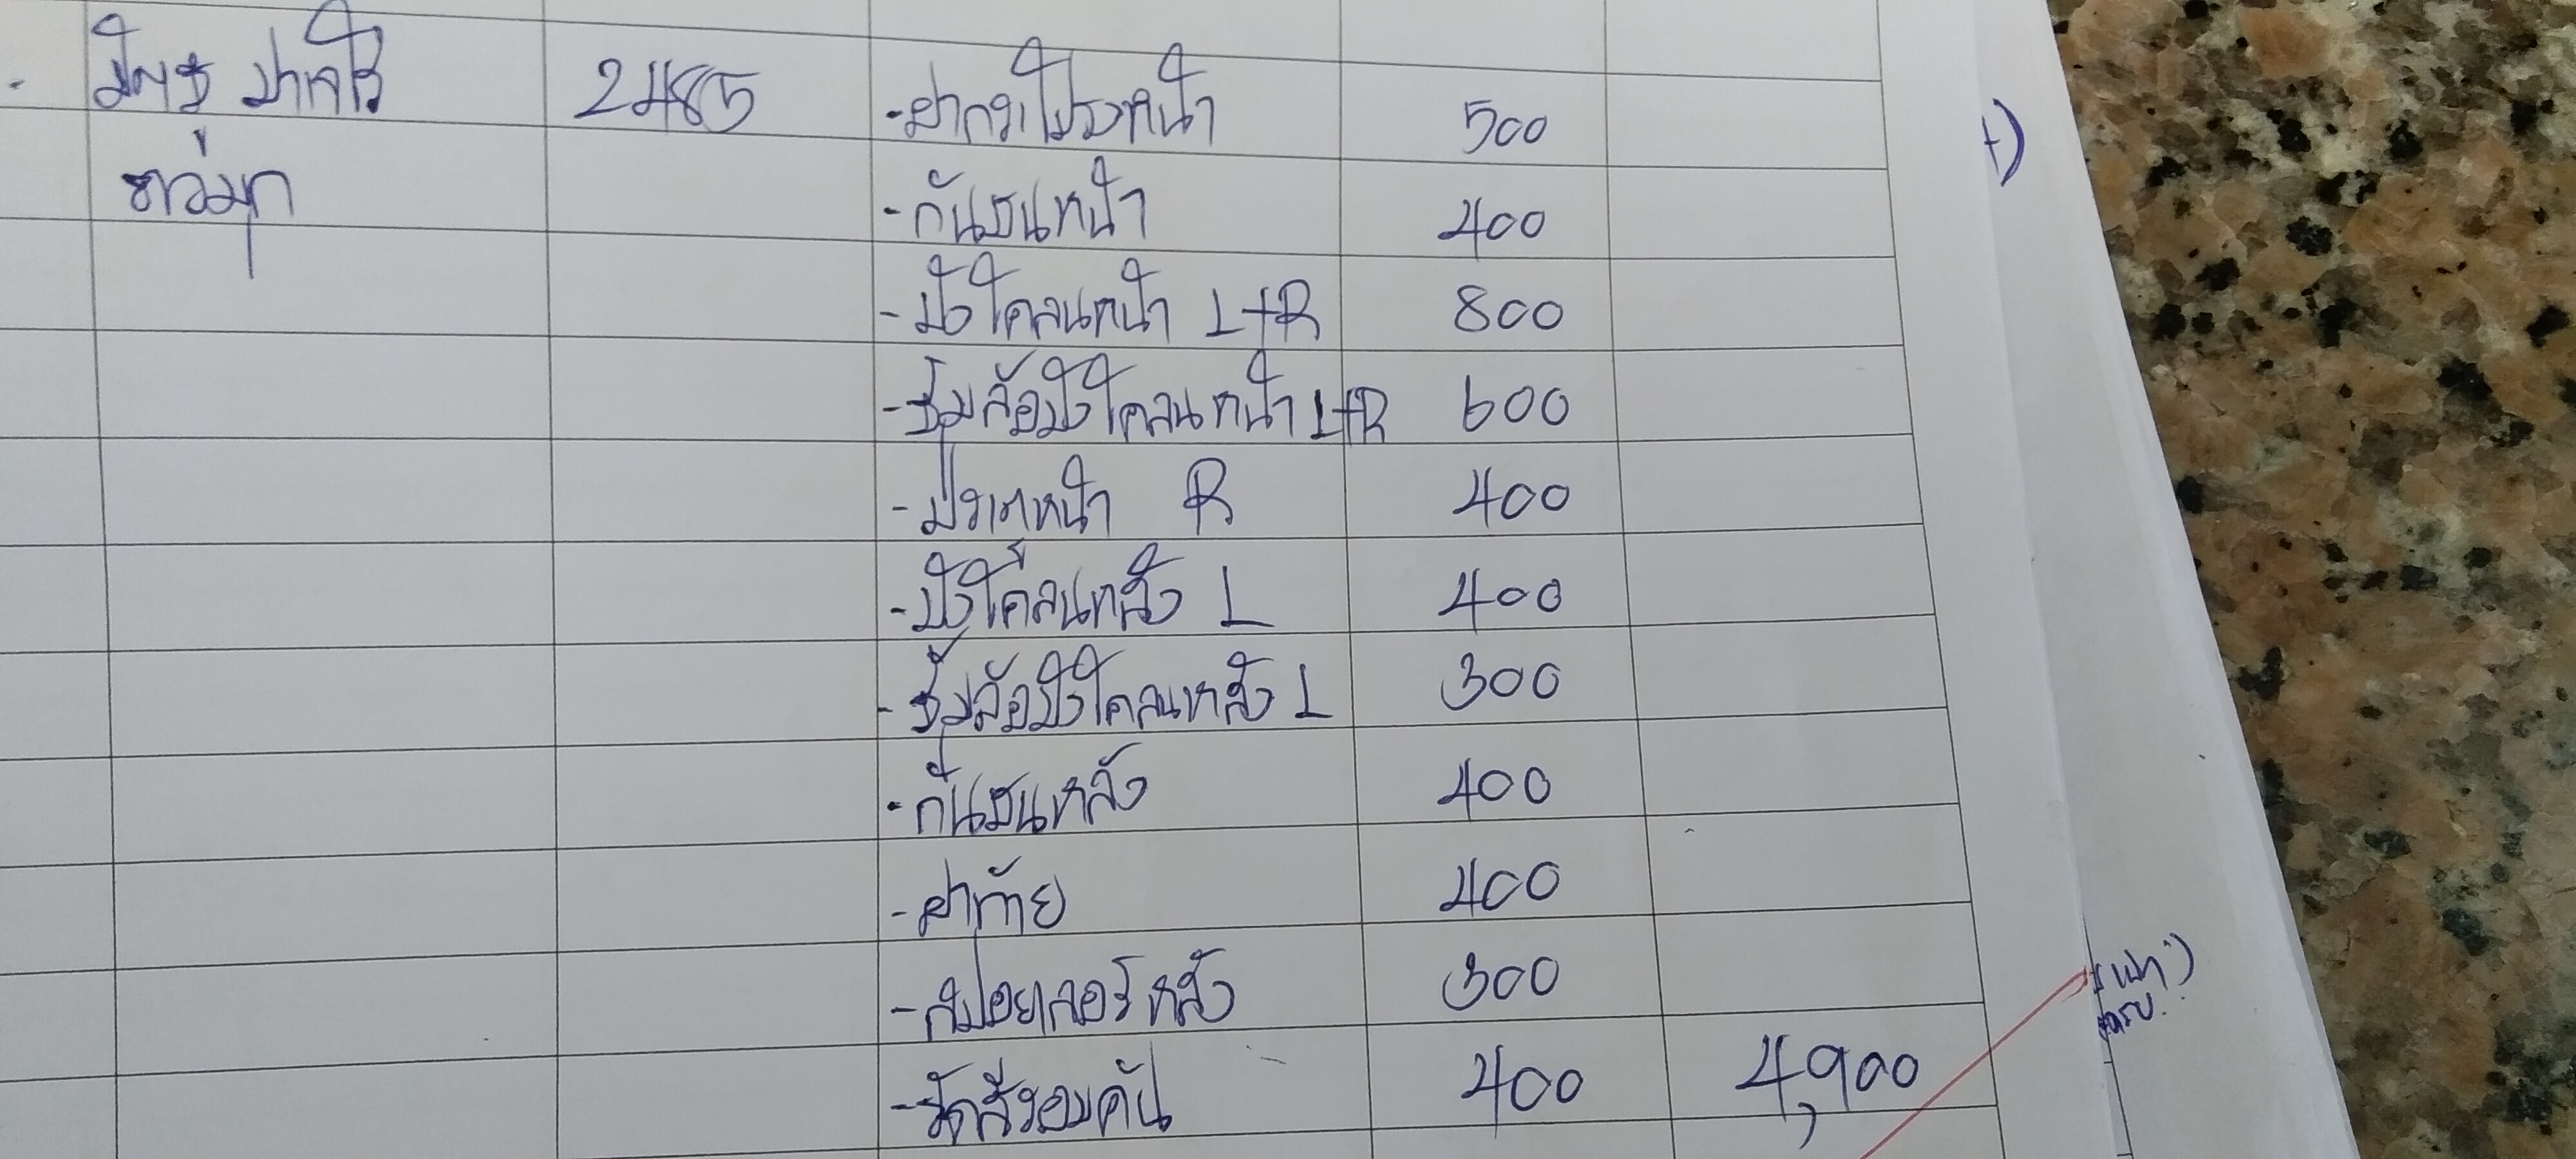 - มิตซู ปาเจโร 2485 - ฝากระโปรงหน้า 500
ขาวมุก - กันชนหน้า 400
- บังโคลนหน้า L+R 800
- ซุ้มล้อบังโคลนหน้า L+R 600
- ประตูหน้า R 400
- บังโคลนหลัง L 400
- ซุ้มล้อบังโคลนหลัง L 300
- กันชนหลัง 400
- ฝาท้าย 400
- สปอยเลอร์หลัง 300
- ขัดสีรอบคัน 400 4,900